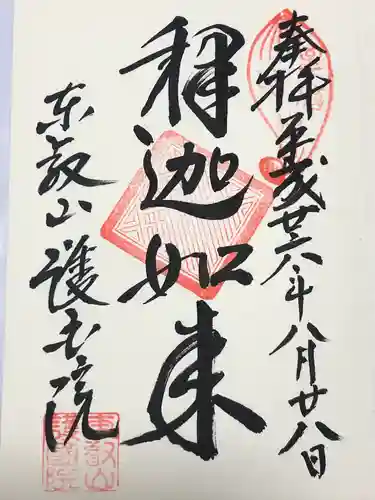 奉拝 平成廿六年八月廿八日
釋迦如来
东叡山護国院
東叡山
護國院